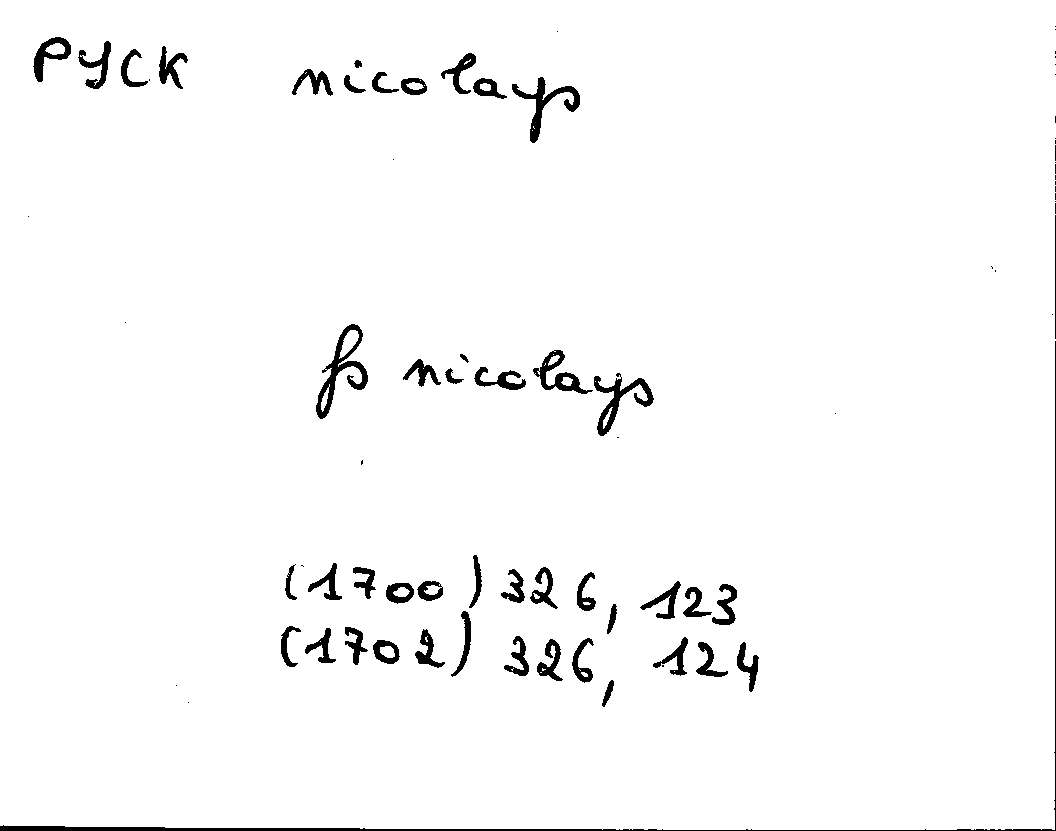 PYCK nicolays
fs nicolays
(1700) 326, 123
(1702) 326, 124